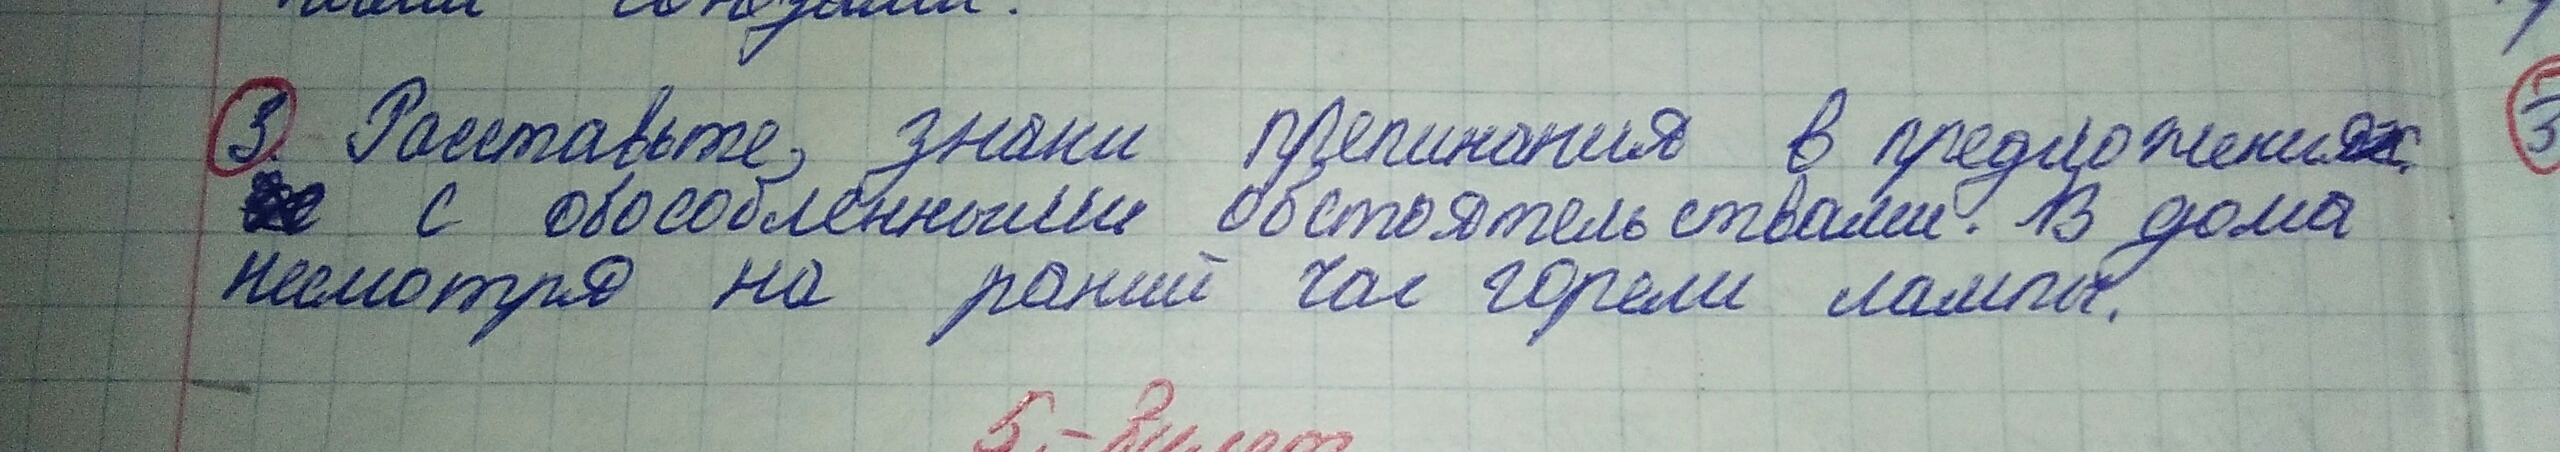 союзами.
3. Расставьте, знаки препинания в предложениях
с обособленными обстоятельствами. В дома
несмотря на раний час горели лампы.
5.-Билет
3